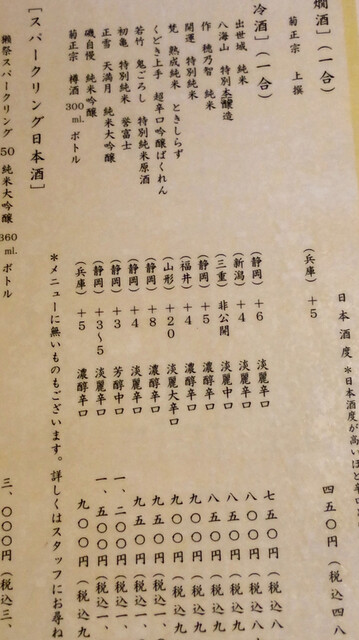 日本酒度 ＊日本酒度が高いほど辛
燗酒］（一合）
菊正宗 上撰 （兵庫） ＋5 四五〇円（税込四八
冷酒］（一合）
出世城 純米 （静岡） ＋6 淡麗辛口 七五〇円（税込八
八海山 特別本醸造 （新潟） ＋4 淡麗辛口 八〇〇円（税込八
作 穂乃智 純米 （三重） 非公開 淡麗中口 八五〇円（税込九
開運 特別純米 （静岡） ＋5 濃醇辛口 八五〇円（税込九
梵 熟成純米 ときしらず （福井） ＋4 濃醇辛口 九〇〇円（税込九
くどき上手 超辛口吟醸ばくれん （山形） ＋20 淡麗大辛口 九〇〇円（税込九
若竹 鬼ごろし 特別純米原酒 （静岡） ＋8 濃醇辛口 九五〇円（税込一、
初亀 特別純米 誉富士 （静岡） ＋4 淡麗辛口 九五〇円（税込一、
正雪 天満月 純米大吟醸 （静岡） ＋3 芳醇中口 一、二〇〇円（税込一、
磯自慢 純米吟醸 （静岡） ＋3～5 淡麗辛口 一、五〇〇円（税込一、
菊正宗 樽酒 300ml. ボトル （兵庫） ＋5 濃醇辛口 九〇〇円（税込九
＊メニューに無いものもございます。詳しくはスタッフにお尋ね
［スパークリング日本酒］
獺祭スパークリング50 純米大吟醸 360ml. ボトル 三、〇〇〇円（税込三、